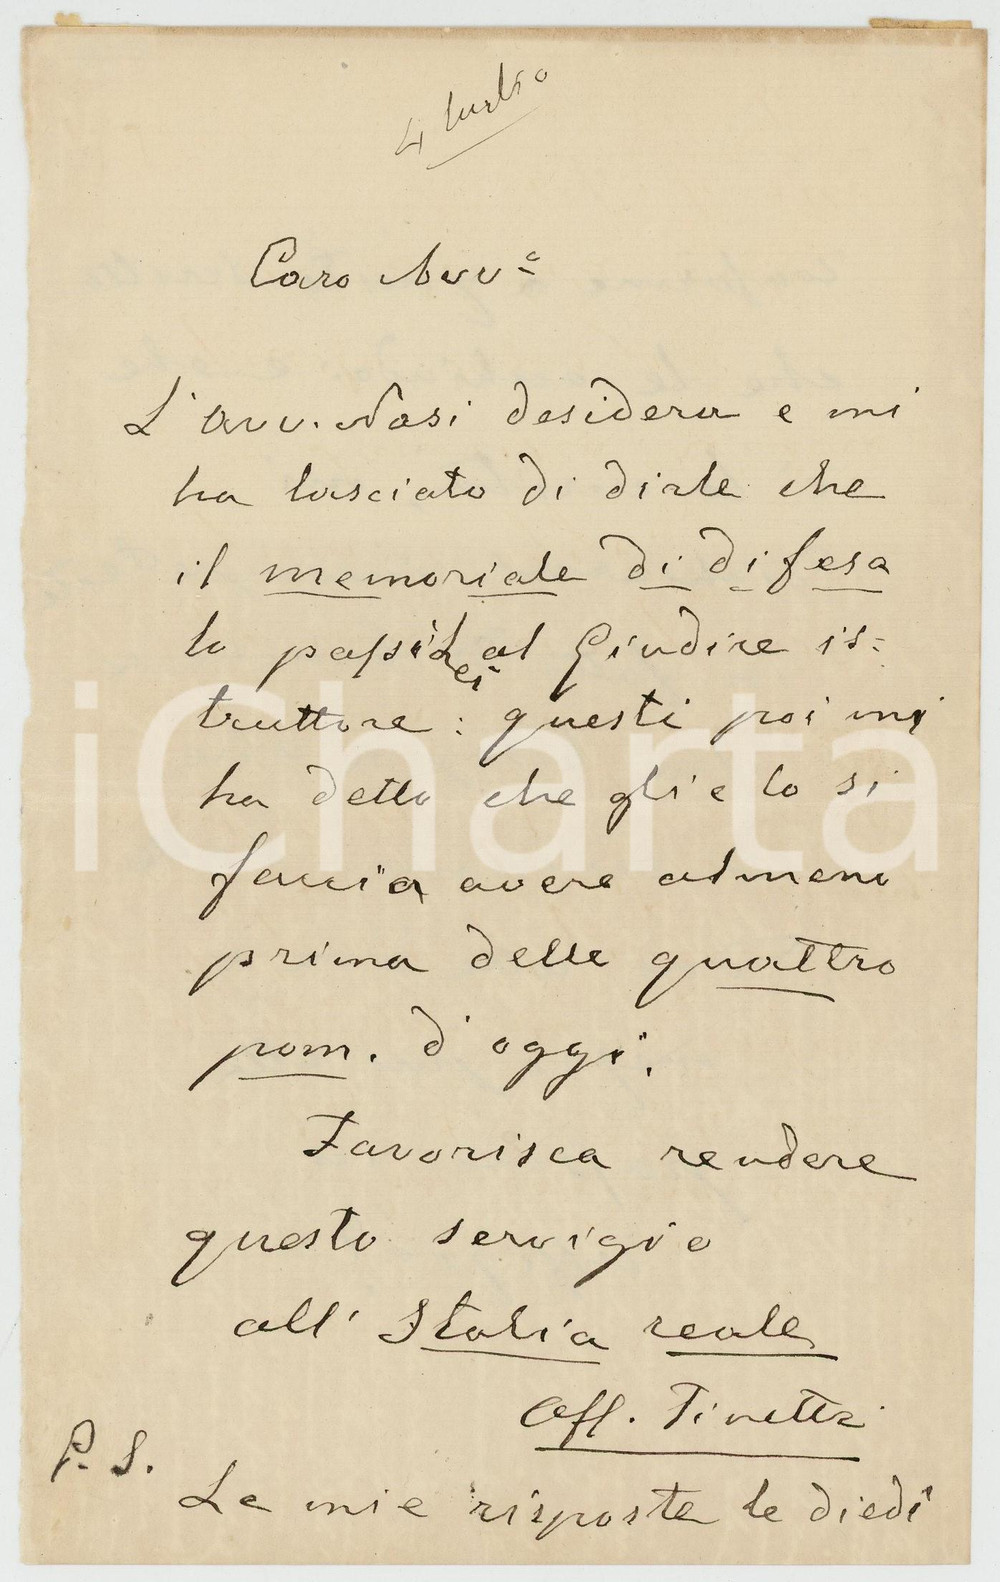 4 luglio
Caro Avv.º
L'avv. Nasi desidera e mi
ha lasciato di dirle che
il memoriale di difesa
lo passi Lei al Giudice is=
truttore: questi poi mi
ha detto che glie lo si
faccia avere almeno
prima delle quattro
pom. d'oggi.
Favorisca rendere
questo servigio
all'Italia reale
Aff. Tinetti
P. S.
Le mie risposte le diedi
iCharta